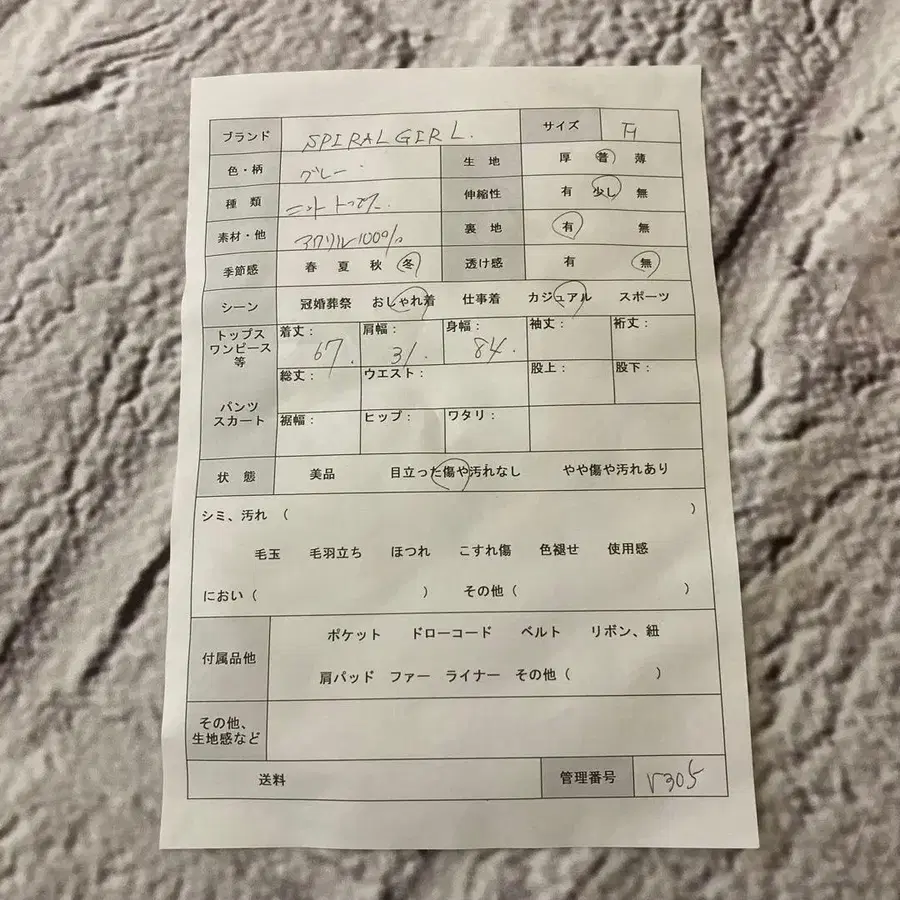 ブランド SPIRAL GIRL. サイズ
色・柄 グレー 生地 厚 普 薄
種類 ニットトップス. 伸縮性 有 少し 無
素材・他 アクリル100% 裏地 有 無
季節感 春 夏 秋 冬 透け感 有 無
シーン 冠婚葬祭 おしゃれ着 仕事着 カジュアル スポーツ
トップス ワンピース 等 着丈: 67. 肩幅: 31. 身幅: 84. 袖丈: 裄丈:
総丈: ウエスト: 股上: 股下:
パンツ スカート 裾幅: ヒップ: ワタリ:
状態 美品 目立った傷や汚れなし やや傷や汚れあり
シミ、汚れ ( )
毛玉 毛羽立ち ほつれ こすれ傷 色褪せ 使用感
におい ( ) その他 ( )
付属品他 ポケット ドローコード ベルト リボン、紐
肩パッド ファー ライナー その他 ( )
その他、
生地感など
送料 管理番号 V305